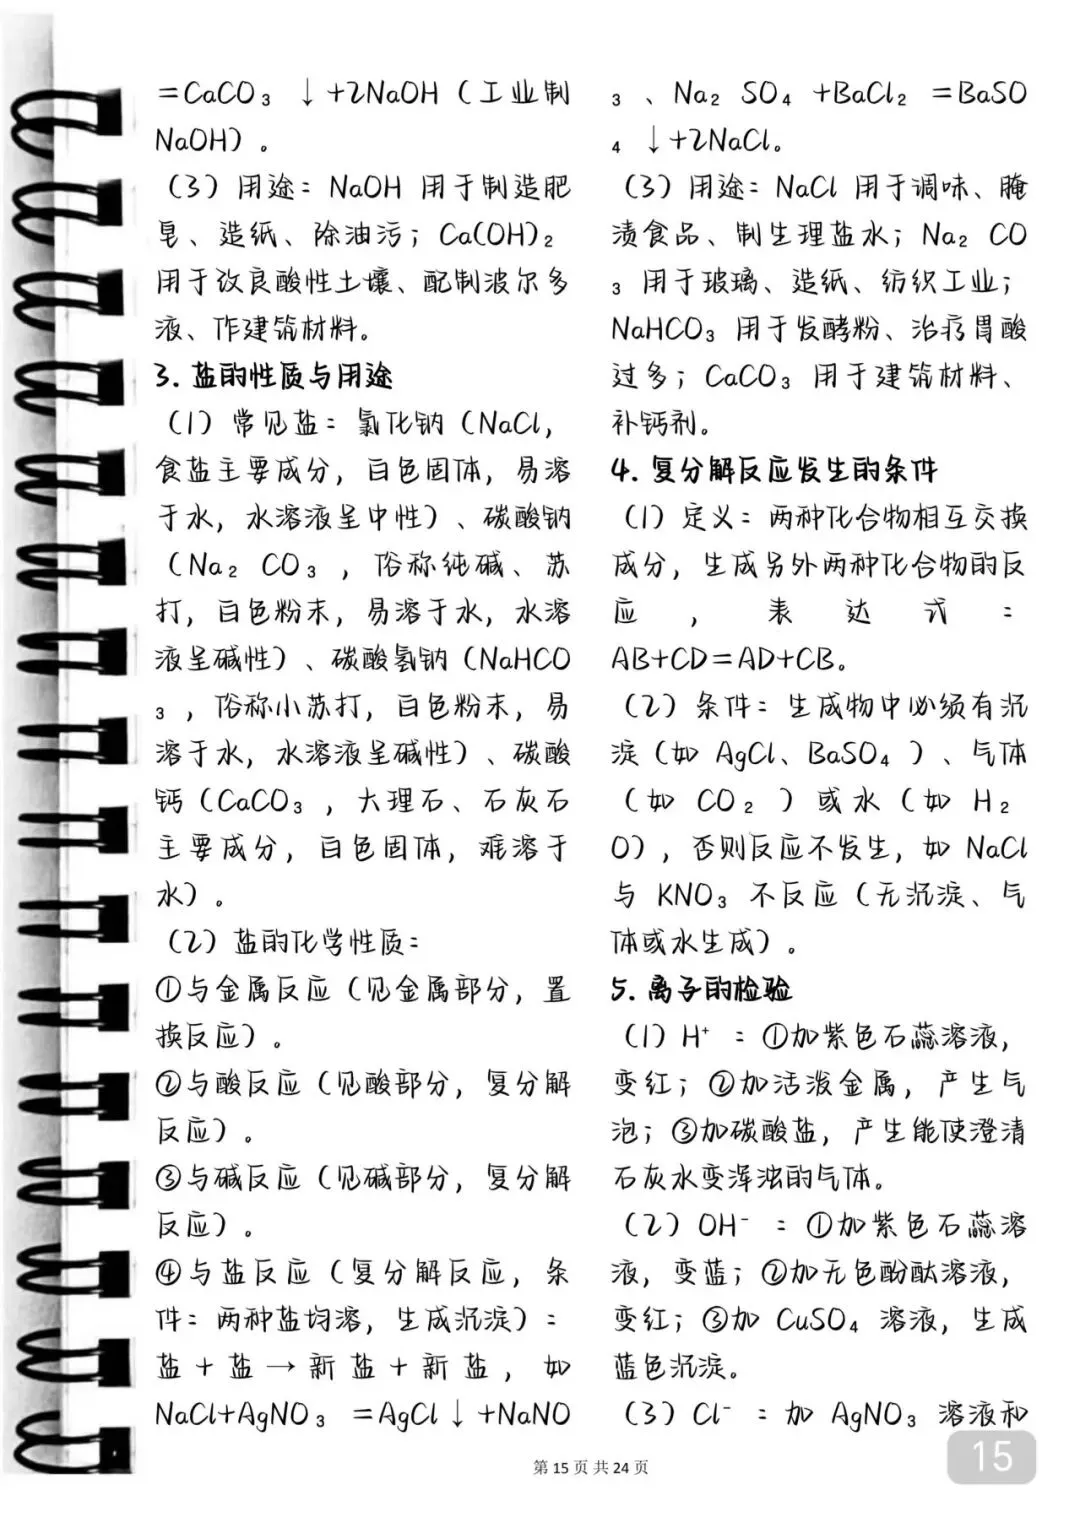 =CaCO₃ ↓+2NaOH（工业制
NaOH）。
（3）用途：NaOH 用于制造肥
皂、造纸、除油污；Ca(OH)₂
用于改良酸性土壤、配制波尔多
液、作建筑材料。
3. 盐的性质与用途
（1）常见盐：氯化钠（NaCl，
食盐主要成分，白色固体，易溶
于水，水溶液呈中性）、碳酸钠
（Na₂ CO₃ ，俗称纯碱、苏
打，白色粉末，易溶于水，水溶
液呈碱性）、碳酸氢钠（NaHCO
₃ ，俗称小苏打，白色粉末，易
溶于水，水溶液呈碱性）、碳酸
钙（CaCO₃ ，大理石、石灰石
主要成分，白色固体，难溶于
水）。
（2）盐的化学性质：
①与金属反应（见金属部分，置
换反应）。
②与酸反应（见酸部分，复分解
反应）。
③与碱反应（见碱部分，复分解
反应）。
④与盐反应（复分解反应，条
件：两种盐均溶，生成沉淀）：
盐＋盐→新盐＋新盐，如
NaCl+AgNO₃ =AgCl↓+NaNO
₃ 、Na₂ SO₄ +BaCl₂ =BaSO
₄ ↓+2NaCl。
（3）用途：NaCl 用于调味、腌
渍食品、制生理盐水；Na₂ CO
₃ 用于玻璃、造纸、纺织工业；
NaHCO₃ 用于发酵粉、治疗胃酸
过多；CaCO₃ 用于建筑材料、
补钙剂。
4. 复分解反应发生的条件
（1）定义：两种化合物相互交换
成分，生成另外两种化合物的反
应，表达式：
AB+CD=AD+CB。
（2）条件：生成物中必须有沉
淀（如 AgCl、BaSO₄ ）、气体
（如 CO₂ ）或水（如 H₂
O），否则反应不发生，如 NaCl
与 KNO₃ 不反应（无沉淀、气
体或水生成）。
5. 离子的检验
（1）H⁺ ：①加紫色石蕊溶液，
变红；②加活泼金属，产生气
泡；③加碳酸盐，产生能使澄清
石灰水变浑浊的气体。
（2）OH⁻ ：①加紫色石蕊溶
液，变蓝；②加无色酚酞溶液，
变红；③加 CuSO₄ 溶液，生成
蓝色沉淀。
（3）Cl⁻ ：加 AgNO₃ 溶液和
第 15 页 共 24 页
15